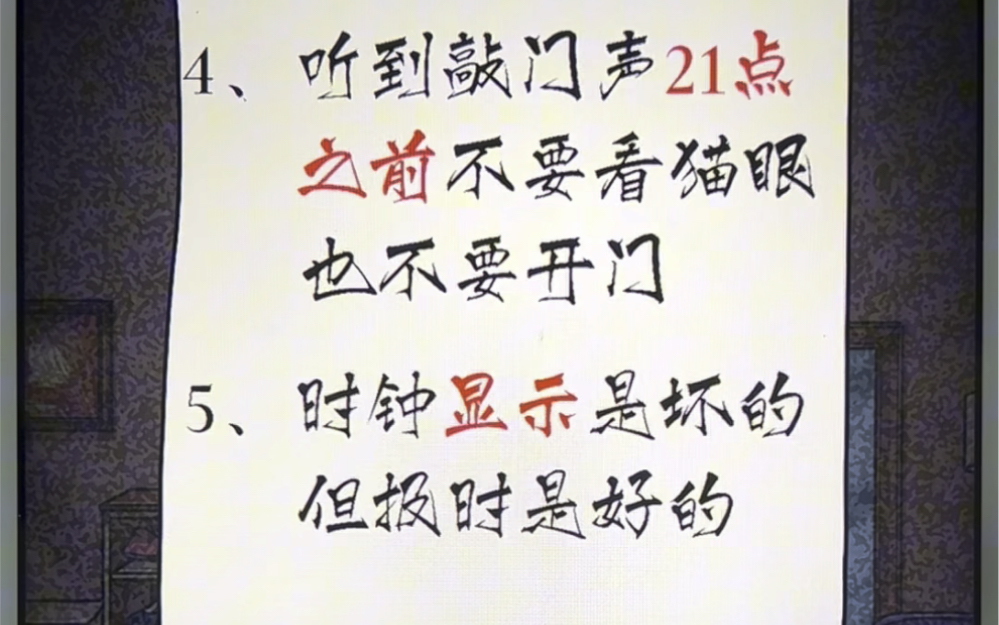 4、听到敲门声21点
之前不要看猫眼
也不要开门
5、时钟显示是坏的
但报时是好的